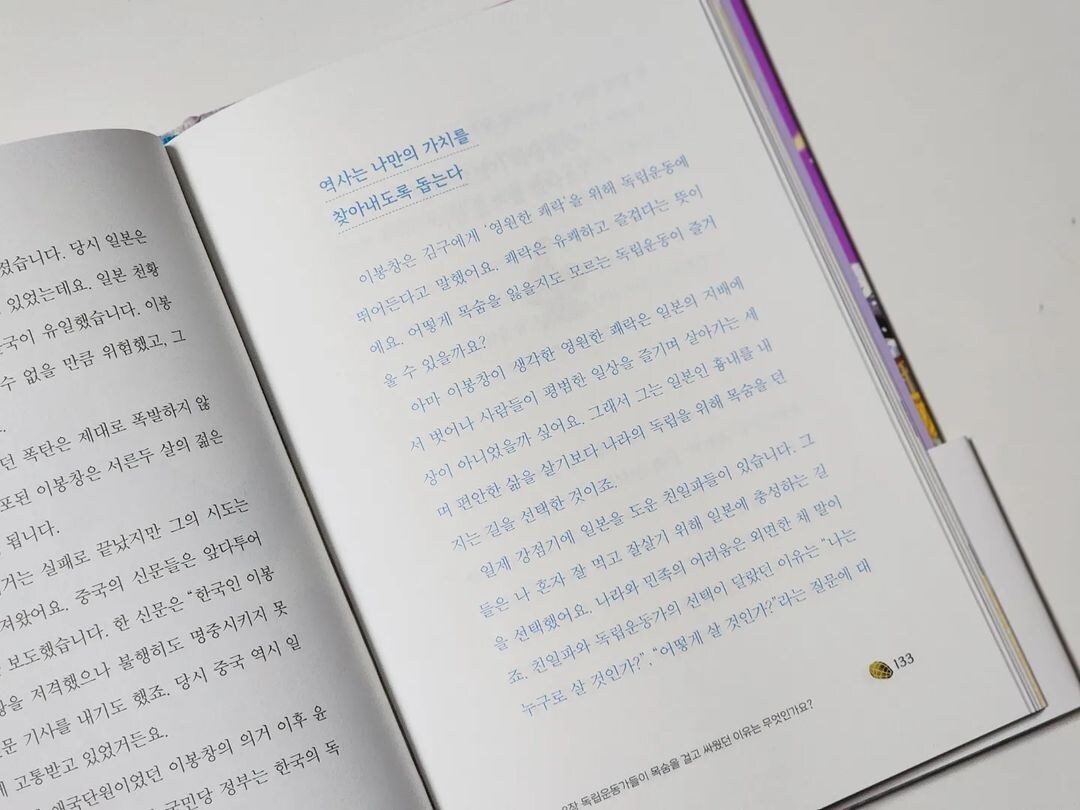 졌습니다. 당시 일본은
있었는데요. 일본 천황
국이 유일했습니다. 이봉
수 없을 만큼 위험했고, 그
던 폭탄은 제대로 폭발하지 않
포된 이봉창은 서른두 살의 젊은
됩니다.
거는 실패로 끝났지만 그의 시도는
져왔어요. 중국의 신문들은 앞다투어
보도했습니다. 한 신문은 “한국인 이봉
황을 저격했으나 불행히도 명중시키지 못
문 기사를 내기도 했죠. 당시 중국 역시 일
고통받고 있었거든요.
애국단원이었던 이봉창의 의거 이후 윤
국민당 정부는 한국의 독
역사는 나만의 가치를
찾아내도록 돕는다
이봉창은 김구에게 ‘영원한 쾌락’을 위해 독립운동에
뛰어든다고 말했어요. 쾌락은 유쾌하고 즐겁다는 뜻이
에요. 어떻게 목숨을 잃을지도 모르는 독립운동이 즐거
울 수 있을까요?
아마 이봉창이 생각한 영원한 쾌락은 일본의 지배에
서 벗어나 사람들이 평범한 일상을 즐기며 살아가는 세
상이 아니었을까 싶어요. 그래서 그는 일본인 흉내를 내
며 편안한 삶을 살기보다 나라의 독립을 위해 목숨을 던
지는 길을 선택한 것이죠.
일제 강점기에 일본을 도운 친일파들이 있습니다. 그
들은 나 혼자 잘 먹고 잘살기 위해 일본에 충성하는 길
을 선택했어요. 나라와 민족의 어려움은 외면한 채 말이
죠. 친일파와 독립운동가의 선택이 달랐던 이유는 “나는
누구로 살 것인가?”, “어떻게 살 것인가?”라는 질문에 대
독립운동가들이 목숨을 걸고 싸웠던 이유는 무엇인가요?
133